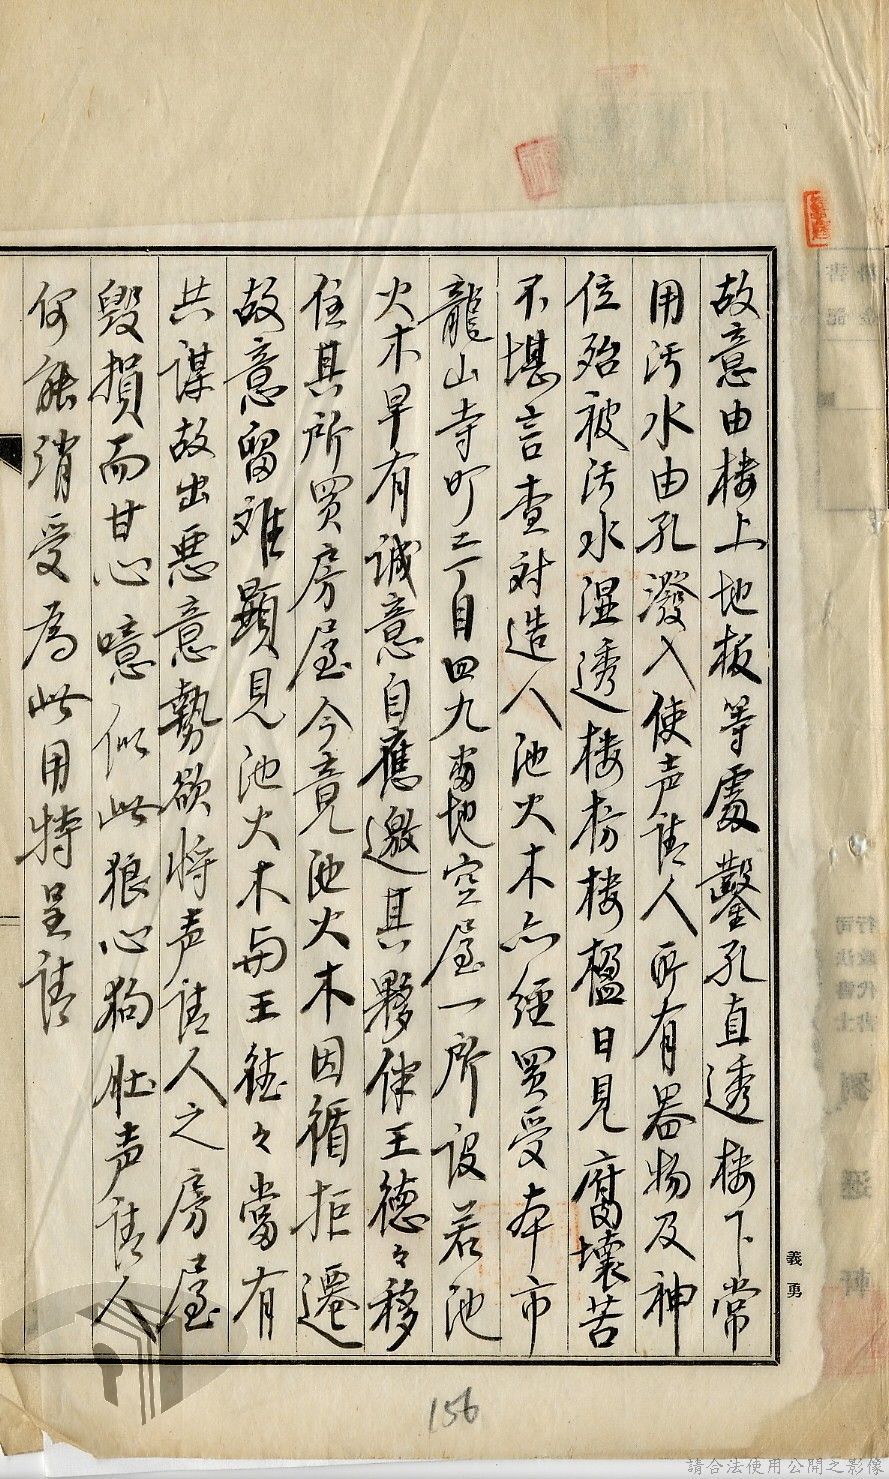 故意由楼上地板等處鑿孔直透楼下常
用污水由孔潑入使声請人所有器物及神
位殆被污水湿透楼枋楼楹日見腐壞苦
不堪言查对造人池火木亦經買受本市
龍山寺町二丁目四九番地空屋一所設若池
火木早有誠意自應邀其夥伴王德々移
住其所買房屋今竟池火木因循拒遷
故意留难顯見池火木与王德々當有
共謀故出恶意勢欲将声請人之房屋
毀損而甘心噫似此狼心狗肚声請人
何能消受為此用特呈請
義勇
156
行政代書士
劉
軒
請合法使用公開之影像